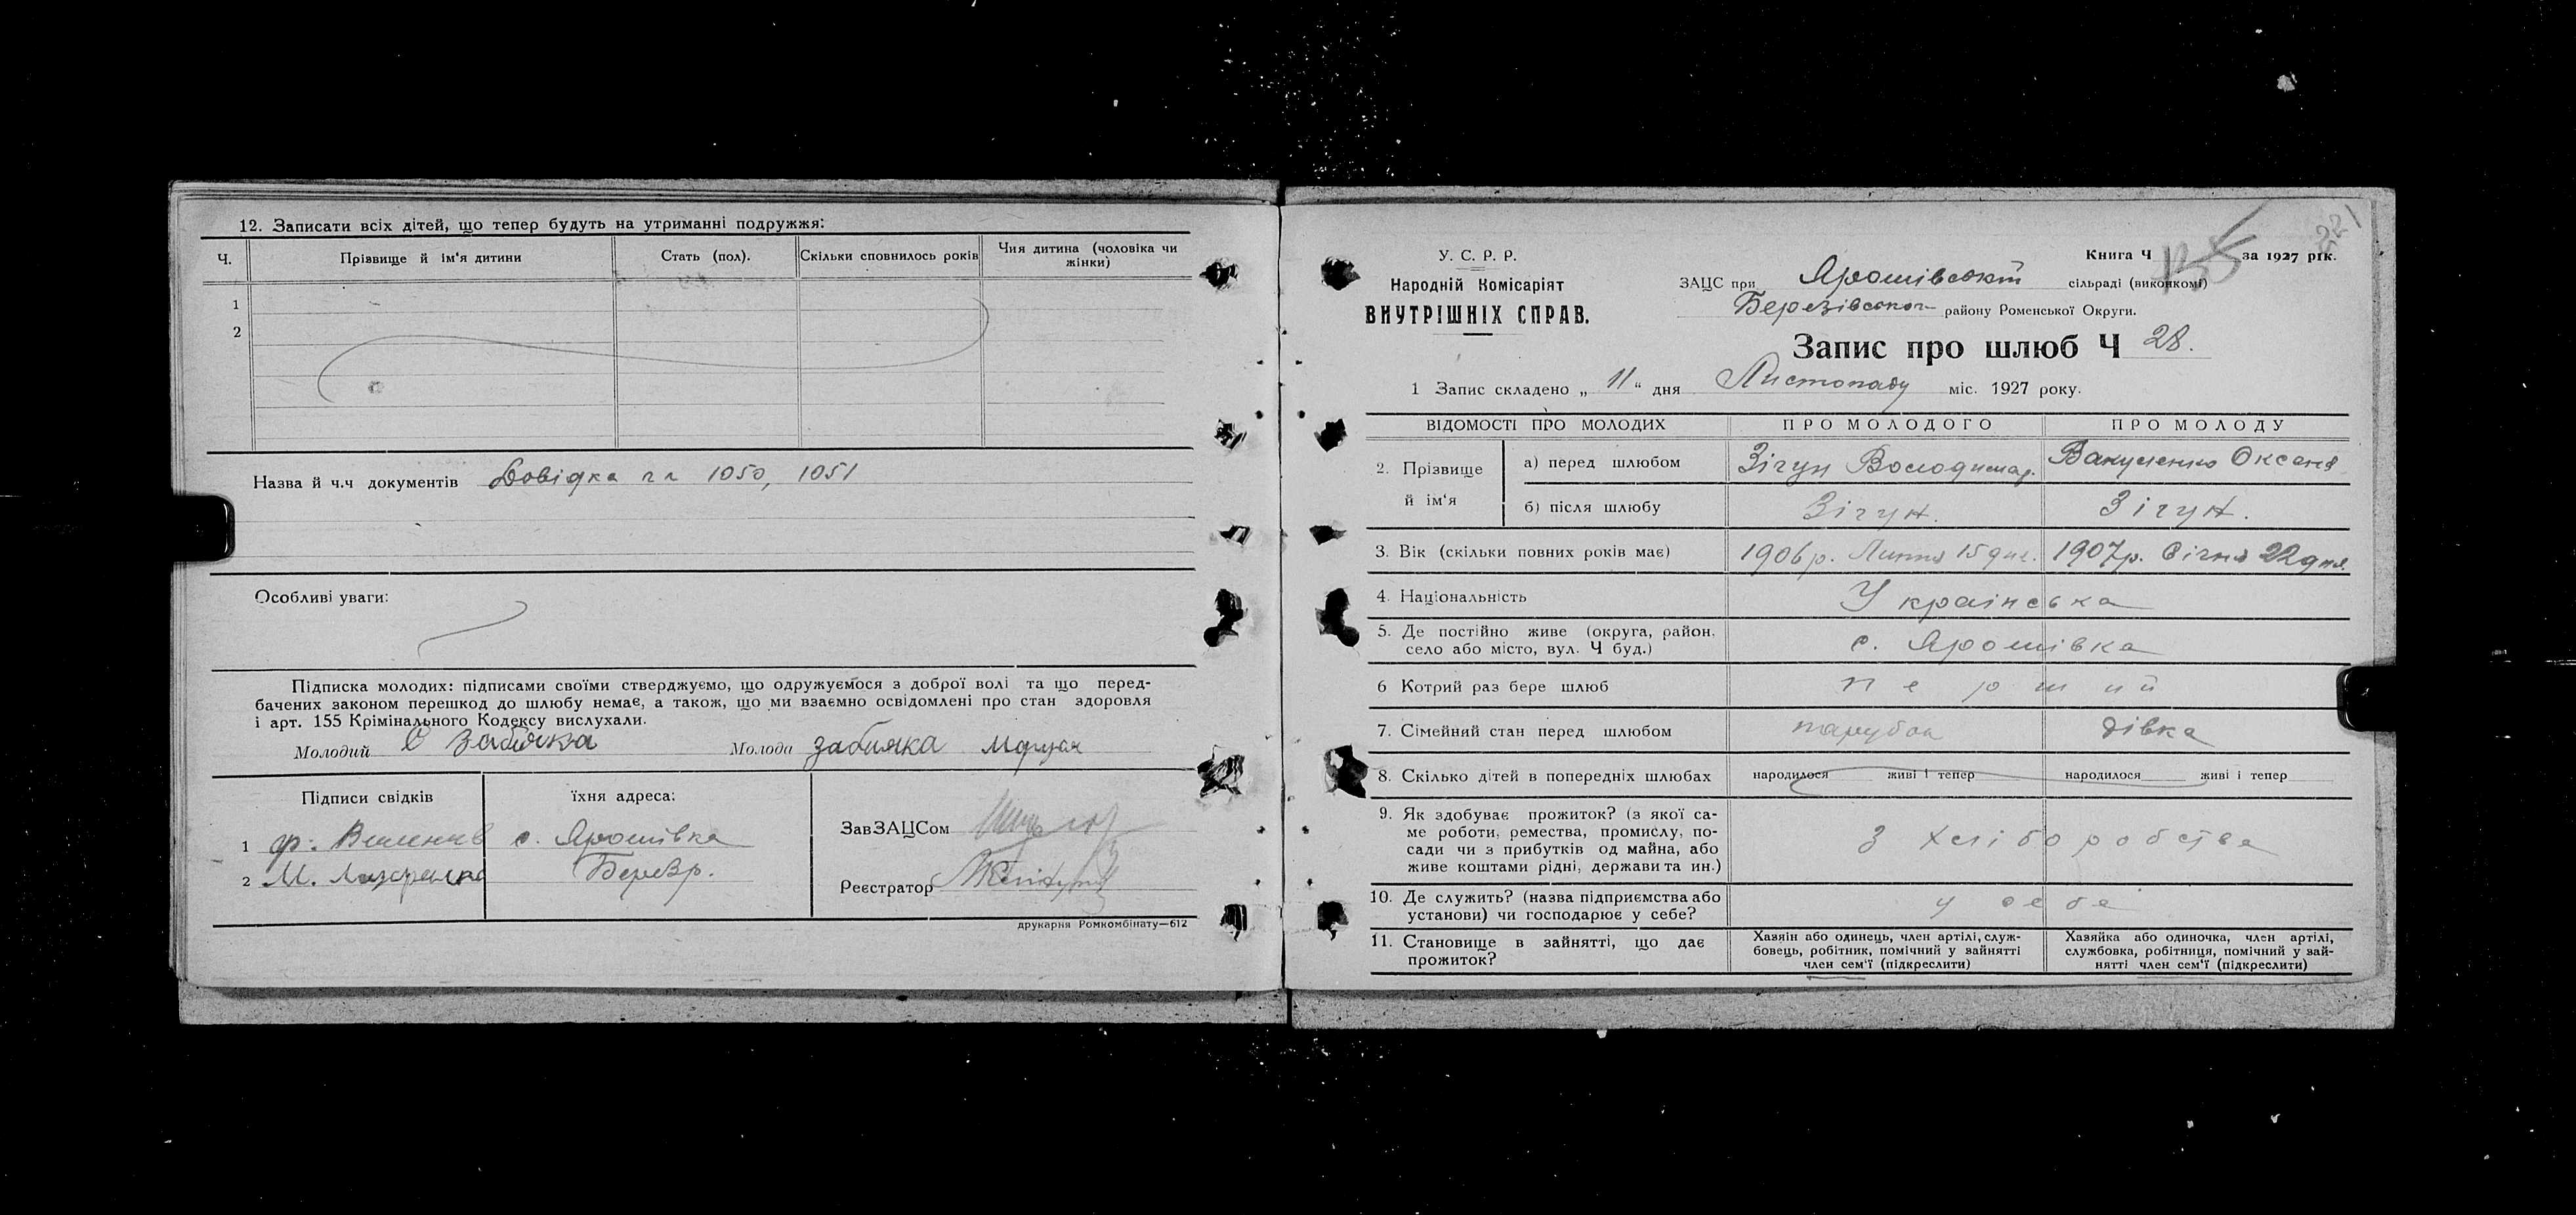 12. Записати всіх дітей, що тепер будуть на утриманні подружжя:
Ч. Прізвище й ім'я дитини Стать (пол). Скільки сповнилось років Чия дитина (чоловіка чи жінки)
1
2
Назва й ч.ч документів Довідка 1050, 1051
Особливі уваги:
Підписка молодих: підписами своїми стверджуємо, що одружуємося з доброї волі та що перед-
бачених законом перешкод до шлюбу немає, а також, що ми взаємно освідомлені про стан здоровля
і арт. 155 Крімінального Кодексу вислухали.
Молодий С Забіяка Молода забияка
Підписи свідків їхня адреса: ЗавЗАЦСом
1 с. Ярошівка
2 М. Березр.
Реєстратор
друкарня Ромкомбінату—612
221
У. С. Р. Р.
Народній Комісаріят
ВНУТРІШНІХ СПРАВ.
Книга Ч 135 за 1927 рік.
ЗАЦС при Ярошівській сільраді (виконкомі)
Березівського району Роменської Округи.
Запис про шлюб Ч 28.
1 Запис складено „ 11 “ дня Листопаду міс. 1927 року.
ВІДОМОСТІ ПРО МОЛОДИХ ПРО МОЛОДОГО ПРО МОЛОДУ
2. Прізвище й ім'я а) перед шлюбом Зігун Володимир. Вакуленко Оксана
б) після шлюбу Зігун. Зігун.
3. Вік (скільки повних років має) 1906 р. Липня 15 дня. 1907 р. Січня 22 дня.
4. Національність Українська
5. Де постійно живе (округа, район, село або місто, вул. Ч буд.) с. Ярошівка
6 Котрий раз бере шлюб перший
7. Сімейний стан перед шлюбом парубок дівка
8. Скілько дітей в попередніх шлюбах народилося живі і тепер народилося живі і тепер
9. Як здобуває прожиток? (з якої са-
ме роботи, ремества, промислу, по-
сади чи з прибутків од майна, або
живе коштами рідні, держави та ин.) З хліборобства
10. Де служить? (назва підприємства або
установи) чи господарює у себе? у себе
11. Становище в зайнятті, що дає
прожиток?
Хазяїн або одинець, член артілі, служ-
бовець, робітник, помічний у зайнятті
член сем'ї (підкреслити)
Хазяйка або одиночка, член артілі,
службовка, робітниця, помічний у зай-
нятті член сем'ї (підкреслити)